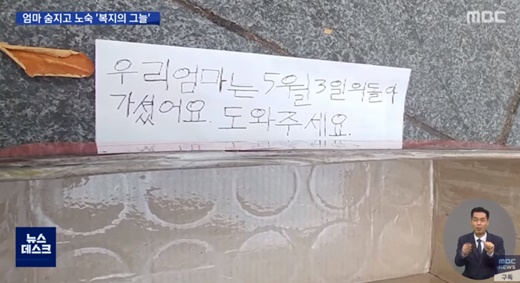 엄마 숨지고 노숙 '복지의 그늘'
MBC
우리엄마는 5월3일날돌아
가셨어요. 도와주세요.
뉴스
데스크
MBC
NEWS
구독